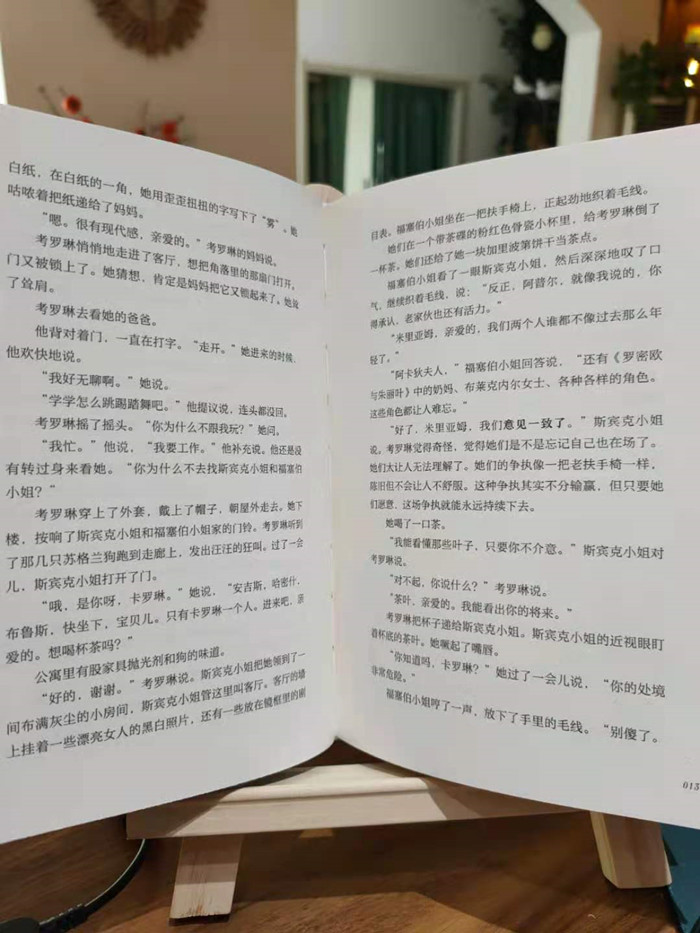 白纸，在白纸的一角，她用歪歪扭扭的字写下了“雾”。她
咕哝着把纸递给了妈妈。
“嗯。很有现代感，亲爱的。”考罗琳的妈妈说。
考罗琳悄悄地走进了客厅，想把角落里的那扇门打开。
门又被锁上了。她猜想，肯定是妈妈把它又锁起来了。她耸
了耸肩。
考罗琳去看她的爸爸。
他背对着门，一直在打字。“走开。”她进来的时候，
他欢快地说。
“我好无聊啊。”她说。
“学学怎么跳踢踏舞吧。”他提议说，连头都没回。
考罗琳摇了摇头。“你为什么不跟我玩？”她问。
“我忙。”他说，“我要工作。”他补充说。他还是没
有转过身来看她。“你为什么不去找斯宾克小姐和福塞伯
小姐？”
考罗琳穿上了外套，戴上了帽子，朝屋外走去。她下
楼，按响了斯宾克小姐和福塞伯小姐家的门铃。考罗琳听到
了那几只苏格兰狗跑到走廊上，发出汪汪的狂叫。过了一会
儿，斯宾克小姐打开了门。
“哦，是你呀，卡罗琳。”她说，“安吉斯，哈密什，
布鲁斯，快坐下，宝贝儿。只有卡罗琳一个人。进来吧，亲
爱的。想喝杯茶吗？”
公寓里有股家具抛光剂和狗的味道。
“好的，谢谢。”考罗琳说。斯宾克小姐把她领到了一
间布满灰尘的小房间，斯宾克小姐管这里叫客厅。客厅的墙
上挂着一些漂亮女人的黑白照片，还有一些放在镜框里的剧
目表。福塞伯小姐坐在一把扶手椅上，正起劲地织着毛线。
她们在一个带茶碟的粉红色骨瓷小杯里，给考罗琳倒了
一杯茶。她们还给了她一块加里波第饼干当茶点。
福塞伯小姐看了一眼斯宾克小姐，然后深深地叹了口
气，继续织着毛线，说：“反正，阿普尔，就像我说的，你
得承认，老家伙也还有活力。”
“米里亚姆，亲爱的，我们两个人谁都不像过去那么年
轻了。”
“阿卡狄夫人，”福塞伯小姐回答说，“还有《罗密欧
与朱丽叶》中的奶妈、布莱克内尔女士、各种各样的角色。
这些角色都让人难忘。”
“好了，米里亚姆，我们意见一致了。”斯宾克小姐
说。考罗琳觉得奇怪，觉得她们是不是忘记自己也在场了。
她们太让人无法理解了。她们的争执像一把老扶手椅一样，
陈旧但不会让人不舒服。这种争执其实不分输赢，但只要她
们愿意，这场争执就能永远持续下去。
她喝了一口茶。
“我能看懂那些叶子，只要你不介意。”斯宾克小姐对
考罗琳说。
“对不起，你说什么？”考罗琳说。
“茶叶，亲爱的。我能看出你的将来。”
考罗琳把杯子递给斯宾克小姐。斯宾克小姐的近视眼盯
着杯底的茶叶。她噘起了嘴唇。
“你知道吗，卡罗琳？”她过了一会儿说，“你的处境
非常危险。”
福塞伯小姐哼了一声，放下了手里的毛线。“别傻了，
013